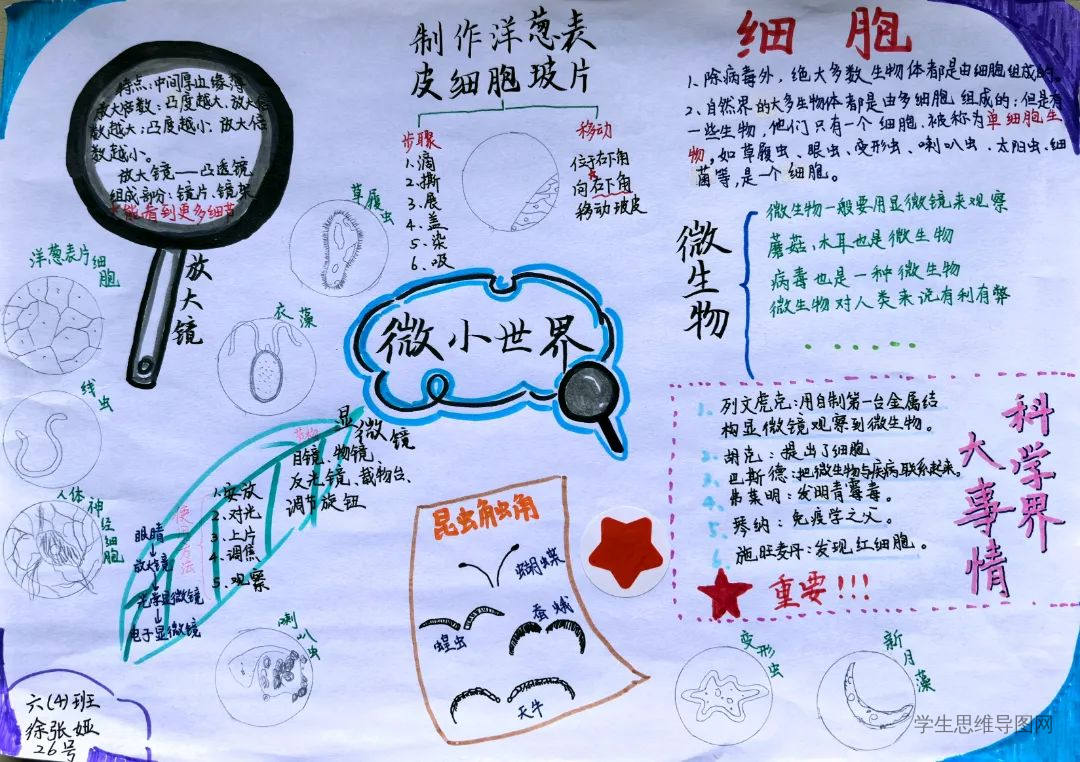 特点:中间厚边缘薄
放大倍数:凸度越大、放大倍
数越大:凸度越小、放大倍
数越小。
放大镜——凸透镜
组成部分:镜片、镜架
能看到更多细节
放大镜
制作洋葱表
皮细胞玻片
步骤
1.滴
2.撕
3.展
4.盖
5.染
6.吸
移动
位于右下角
向右下角
移动玻皮
细胞
1、除病毒外,绝大多数生物体都是由细胞组成的。
2、自然界的大多生物体都是由多细胞组成的;但是有
一些生物,他们只有一个细胞.被称为单细胞生
物,如草履虫、眼虫、变形虫、喇叭虫、太阳虫、细
菌等,是一个细胞。
微生物
微生物一般要用显微镜来观察
蘑菇、木耳也是微生物
病毒也是一种微生物
微生物对人类来说有利有弊
······
草履虫
洋葱表片细胞
衣藻
线虫
人体神经细胞
微小世界
显微镜
目镜、物镜、
反光镜、载物台、
调节旋钮
使用方法
1.安放
2.对光
3.上片
4.调焦
5.观察
眼睛
放大镜
光学显微镜
电子显微镜
喇叭虫
昆虫触角
蝴蝶
蚕蛾
蝗虫
天牛
科学界
大事情
1.列文虎克:用自制第一台金属结
构显微镜观察到微生物。
2.胡克:提出了细胞
3.巴斯德:把微生物与疾病联系起来。
4.弗莱明:发明青霉毒。
5.琴纳:免疫学之父。
6.施旺麦丹:发现红细胞。
重要!!!
变形虫
新月藻
六(4)班
徐张娅
26号
学生思维导图网